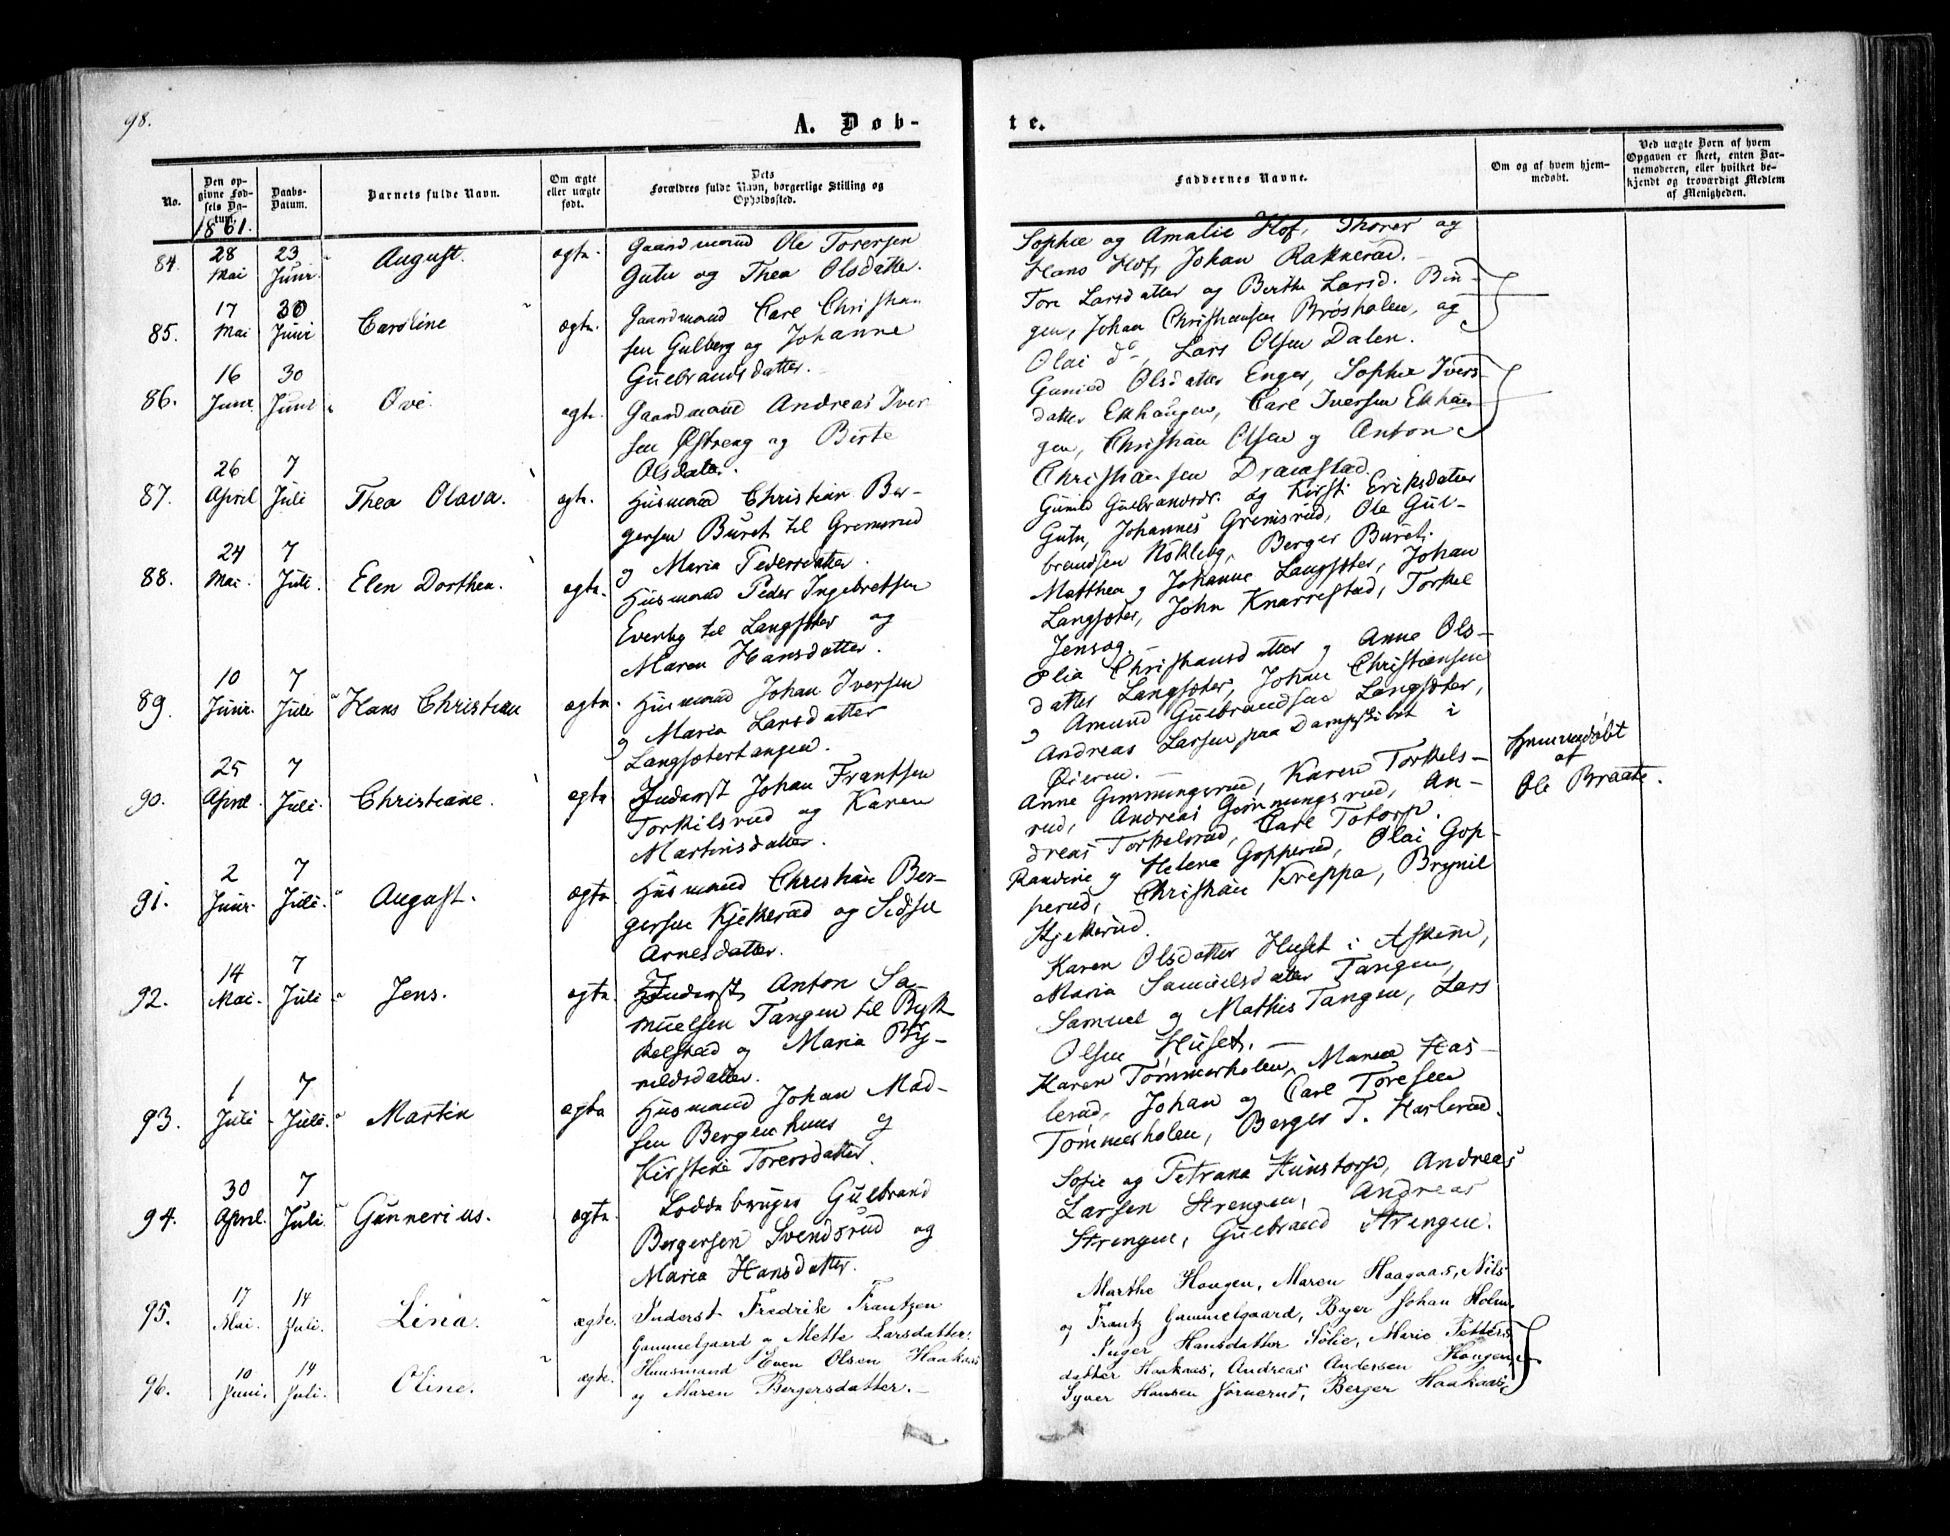 98.
A. Døb-
te.
No.
Den op-
givne Fød-
sels Da-
tum.
Daabs-
Datum.
Barnets fulde Navn.
Om ægte
eller uægte
født.
Dets
Forældres fulde Navn, borgerlige Stilling og
Opholdssted.
Faddernes Navne.
Om og af hvem hjem-
medøbt.
Ved uægte Børn af hvem
Opgaven er skeet, enten Bar-
nemoderen, eller hvilket be-
kjendt og troværdigt Medlem
af Menigheden.
1861.
84. 28 Mai 23 Juni August. ægte.
Gaardmand Ole Torersen
Gutu og Thea Olsdatter.
Sophie og Amalie Hof, Thorer og
Hans Hof, Johan Rakkerud.
85. 17 Mai 30 Juni Caroline ægte.
Gaardmand Carl Christian
sen Gulberg og Johanne
Gulbrandsdatter.
Tore Larsdatter og Berthe Larsd. Bin-
gen, Johan Christiansen Brøsholen, og
Olai do, Lars Olsen Dalen.
86. 16 Juni 30 Juni Ove ægte.
Gaardmand Andreas Iver
sen Østreng og Birte
Olsdatter.
Gunild Olsdatter Enger, Sophie Ivers-
datter Ekhaugen, Carl Iversen Ekhau-
gen, Christian Olsen og Anton
Christiansen Dramstad.
87. 26 April 7 Juli Thea Olava. ægte.
Husmand Christian Ber-
gersen Buret til Gremsrud
og Maria Pedersdatter.
Gunild Gulbrandsdr. og Kirsti Eriksdatter
Gutu, Johannes Gremsrud, Ole Gul-
brandsen Nökleby, Berger Buret.
88. 24 Mai. 7 Juli Elen Dorthea. ægte.
Husmand Peder Ingebretsen
Evenby til Langsæter og
Maren Hansdatter.
Matthea og Johanne Langsæter, Johan
Langsæter, John Knarrestad, Torkel
Jensæg.
89. 10 Juni. 7 Juli Hans Christian ægte.
Husmand Johan Iversen
og Maria Larsdatter
Langsætertangen.
Olia Christiansdatter og Anne Ols-
datter Langsæter, Johan Christiansen
og Amund Gulbrandsen Langsæter,
Andreas Larsen paa Dampskibet i
Øieren.
90. 25 April 7 Juli. Christiane. ægte
Inderst Johan Frantsen
Torkilsrud og Karen
Martinsdatter.
Anne Gimmingsrud, Karen Torkels-
rud, Andreas Gimmingsrud, An-
dreas Torkelsrud, Carl Totorp.
Hjemmedøbt
af
Ole Braate.
91. 2 Juni. 7 Juli. August. ægte
Husmand Christian Ber-
gersen Kjekkerud og Sidsel
Arnesdatter.
Randine og Helene Gopperud, Olai Gop-
perud, Christian Kreppa, Brynil
Kjekkerud.
92. 14 Mai. 7 Juli Jens. ægte
Inderst Anton Sa-
muelsen Tangen til Byk
kelstad og Maria Bry-
nildsdatter.
Karen Olsdatter Huset i Askim,
Maria Samuelsdatter Tangen,
Samuel og Mathis Tangen, Lars
Olsen Huset.
93. 1 Juli 7 Juli. Martin ægte
Husmand Johan Mad-
sen Bergenhuus og
Kirstine Torersdatter.
Karen Tømmerholen, Maren Has-
lerud, Johan og Carl Toresen
Tømmerholen, Berger T. Haslerud.
94. 30 April. 7 Juli Gunnerius. ægte.
Lodde bruger Gulbrand
Bergersen Svendsrud og
Maria Hansdatter.
Sofie og Petrana Hunstorp, Andreas
Larsen Strengen, Andreas
Strengen, Gulbrand Strengen.
95. 17 Mai. 14 Juli. Lina. ægte.
Inderst Fredrik Frantzen
Gammelgaard og Mette Larsdatter.
Marthe Haugen, Maren Haagaas, Nils
og Frantz Gammelgaard, Bejer Johan Holm.
96. 10 Juni. 14 Juli. Oline. ægte.
Huusmand Even Olsen Haakaas
og Maren Bergersdatter.
Inger Hansdatter Solie, Marie Petters
datter Haakaas, Andreas Andersen Haugen
Syver Hansen Jørnerud, Berger Haakaas.